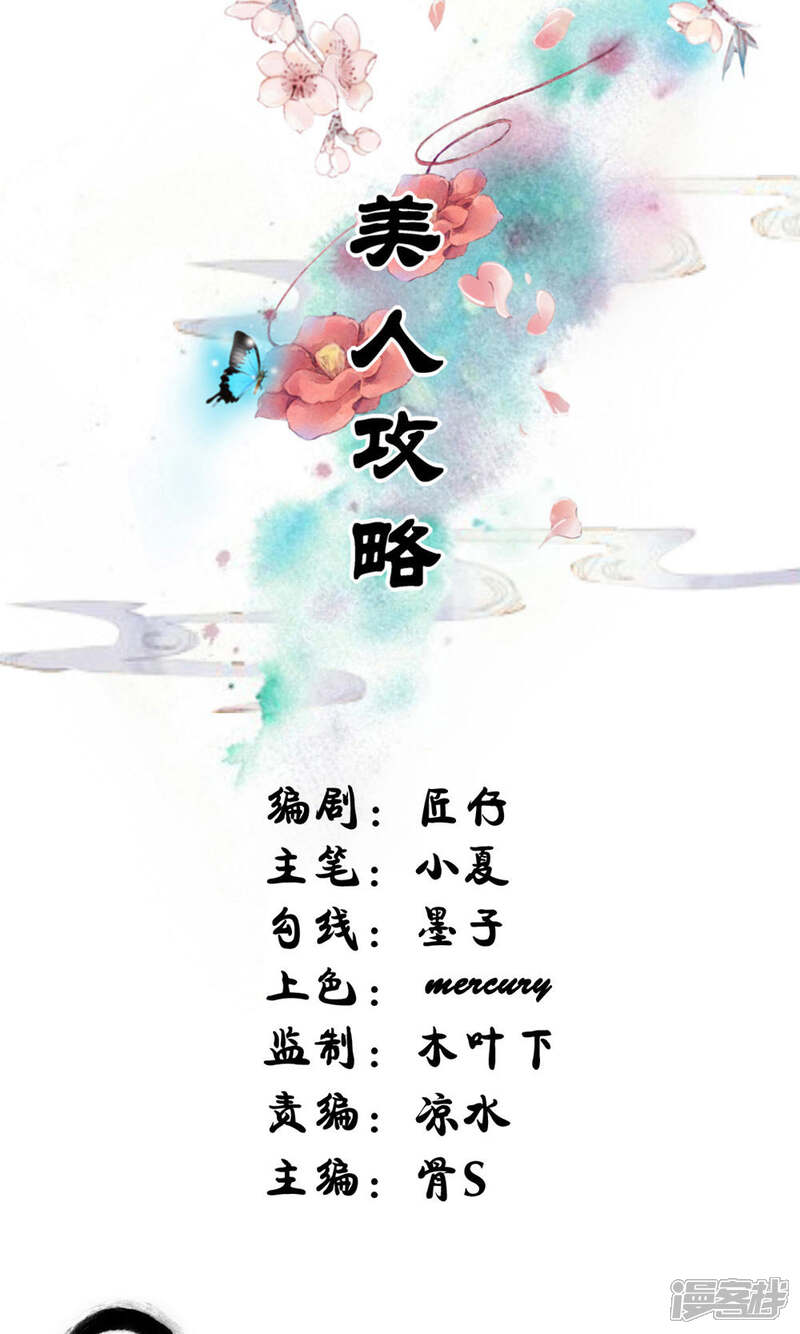 美人攻略
编剧：匠仔
主笔：小夏
勾线：墨子
上色：mercury
监制：木叶下
责编：凉水
主编：骨S
漫客栈